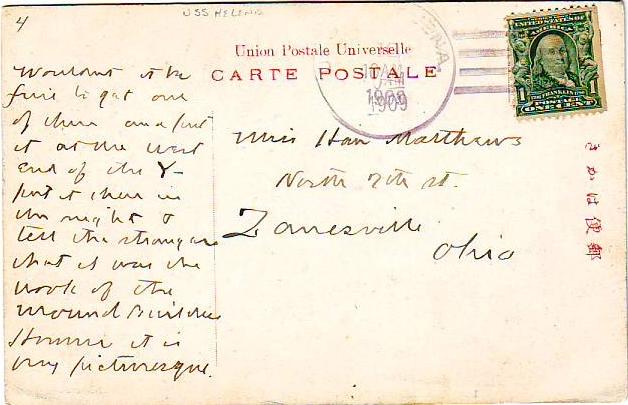 4
USS HELENA
Union Postale Universelle
CARTE POSTALE
ENA
JAN
1909
UNITED STATES OF
AMERICA
1 FRANKLIN 1
POSTAGE
ONE CENT
Wouldnt it be
fine to get one
of these and put
it at the west
end of the Y-
put it there in
the night &
tell the strangers
that it was the
work of the
Mound Builders
it is
very picturesque.
Miss Matthews
North 7th st.
Zanesville
Ohio
きかは便郵